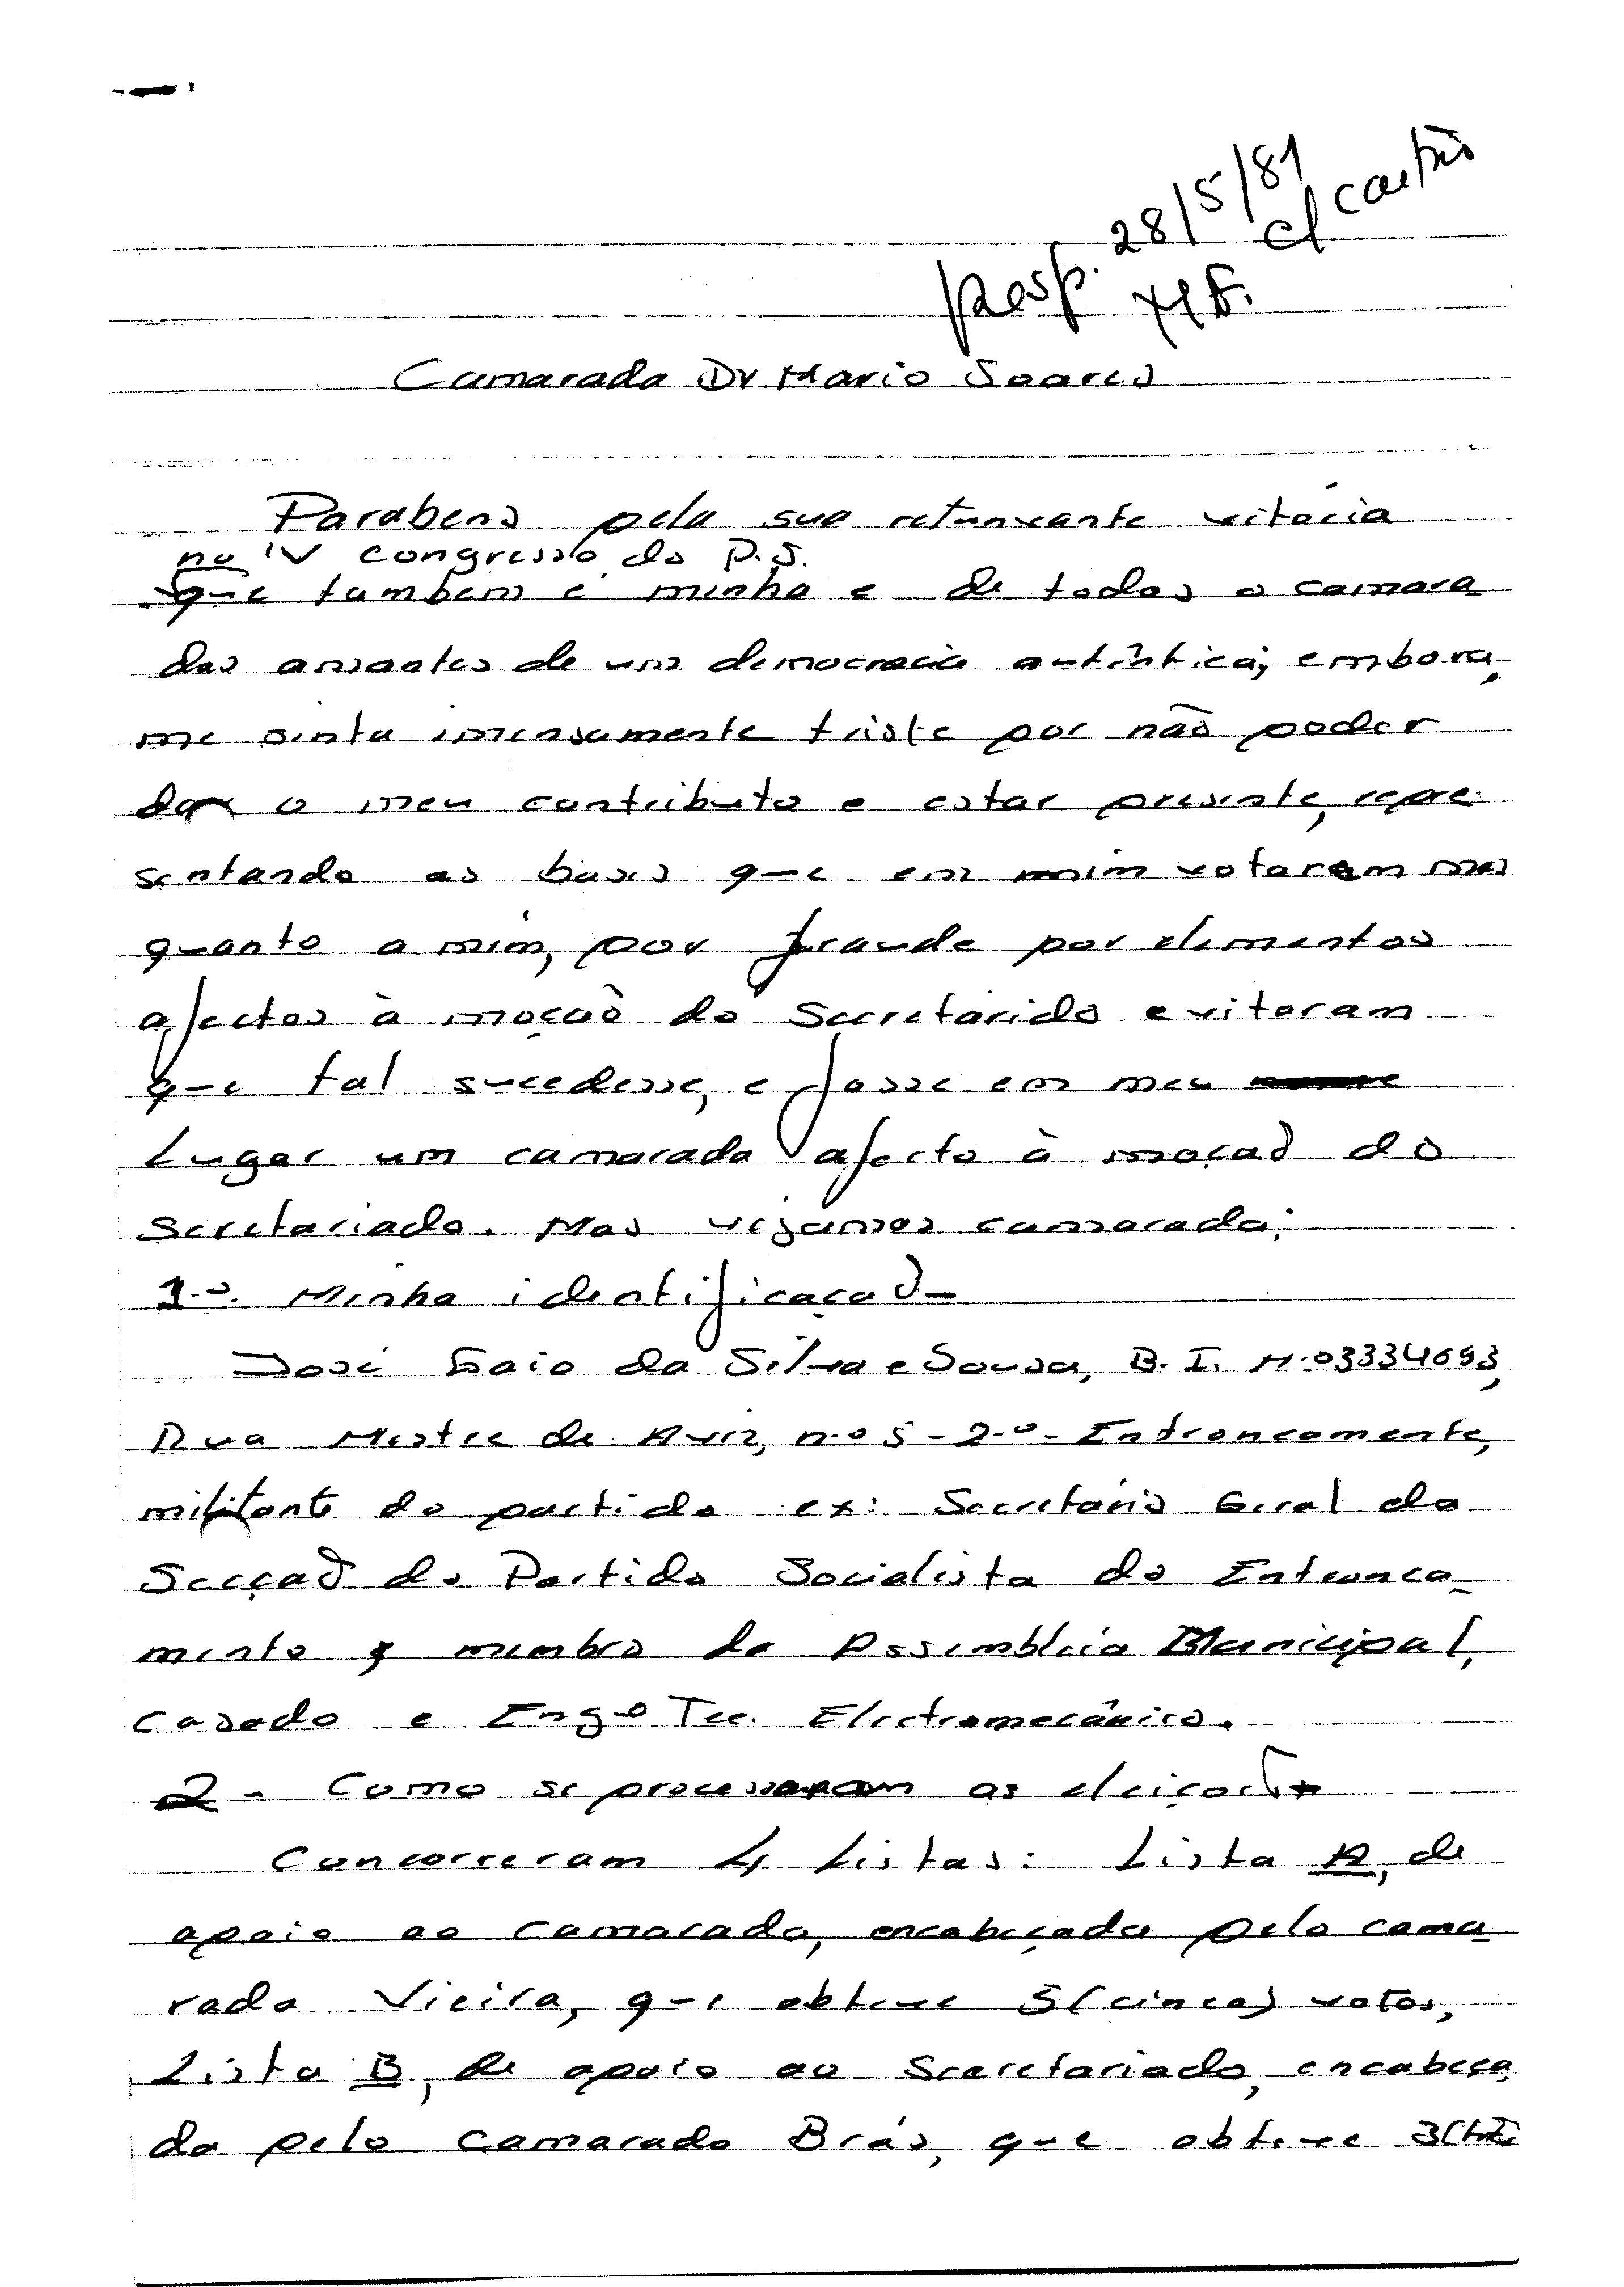 Resp. 28/5/81
c/ cartão
Camarada Dr Mario Soares
Parabens pela sua retunxante vitória
no IV congresso do P.S.
que tambem é minha e de todos o camara
das amantes de um democracia autêntica; embora,
me sinta imensamente triste por não poder
dar o meu contributo e estar presente, repre-
sentando as bases que em mim votaram mas
quanto a mim, por fraude por elementos
afectos à moção do Secretarido evitaram
que tal sucedesse, e fosse em meu
Lugar um camarada afecto à moção do
Secretariado. Mas vejamos camarada:
1.º Minha identificação -
José Gaio da Silva e Sousa, B.I. N.03334693,
Rua Mestre de Aviz, n.º 5 - 2.º - Entroncamento,
militante do partido ex: Secretário Geral da
Secção do Partido Socialista do Entronca-
mento, membro da Assembleia Municipal,
casado e Engº Tec. Electromecânico.
2 - Como se processaram as eleições
Concorreram 4 Listas: Lista A, de
apoio ao camarada, encabeçada pelo cama
rada Vieira, que obteve 5 (cinco) votos,
Lista B, de apoio ao Secretariado, encabeça
da pelo camarada Brás, que obteve 3 (três